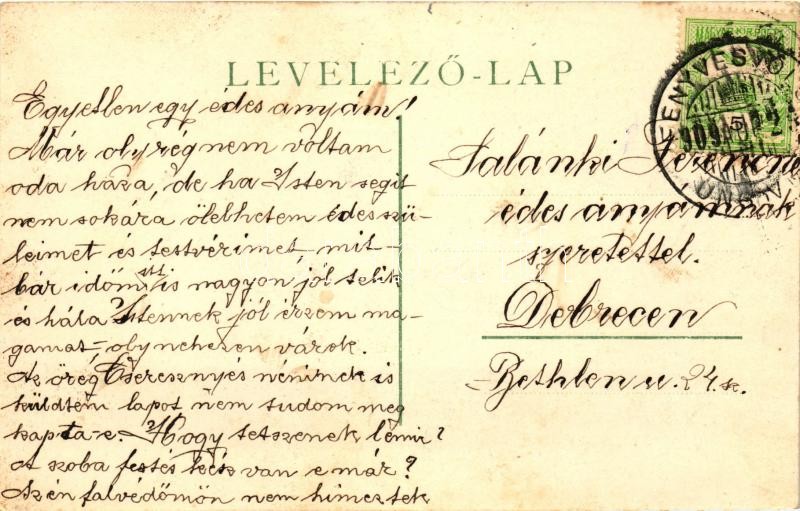 LEVELEZŐ-LAP
Egyetlen egy édes anyám!
Már oly rég nem voltam
oda haza, de ha Isten segit
nem sokára ölelhetem édes szü-
leimet és testvérimet, mit-
bár időm itt is nagyon jól telik
és hála Istennek jól érzem ma-
gamat - oly nehezen várok.
Az öreg Cseresznyés néninek is
küldtem lapot nem tudom meg
kapta-e. Hogy tetszenek lenni?
A szoba festés kész van e már?
Az én falvédőmön nem himeztek
FENYVESVÖL
909
UNG
Salánki Ferencné
édes anyámnak
szeretettel.
Debrecen
Bethlen u. 24 sz.